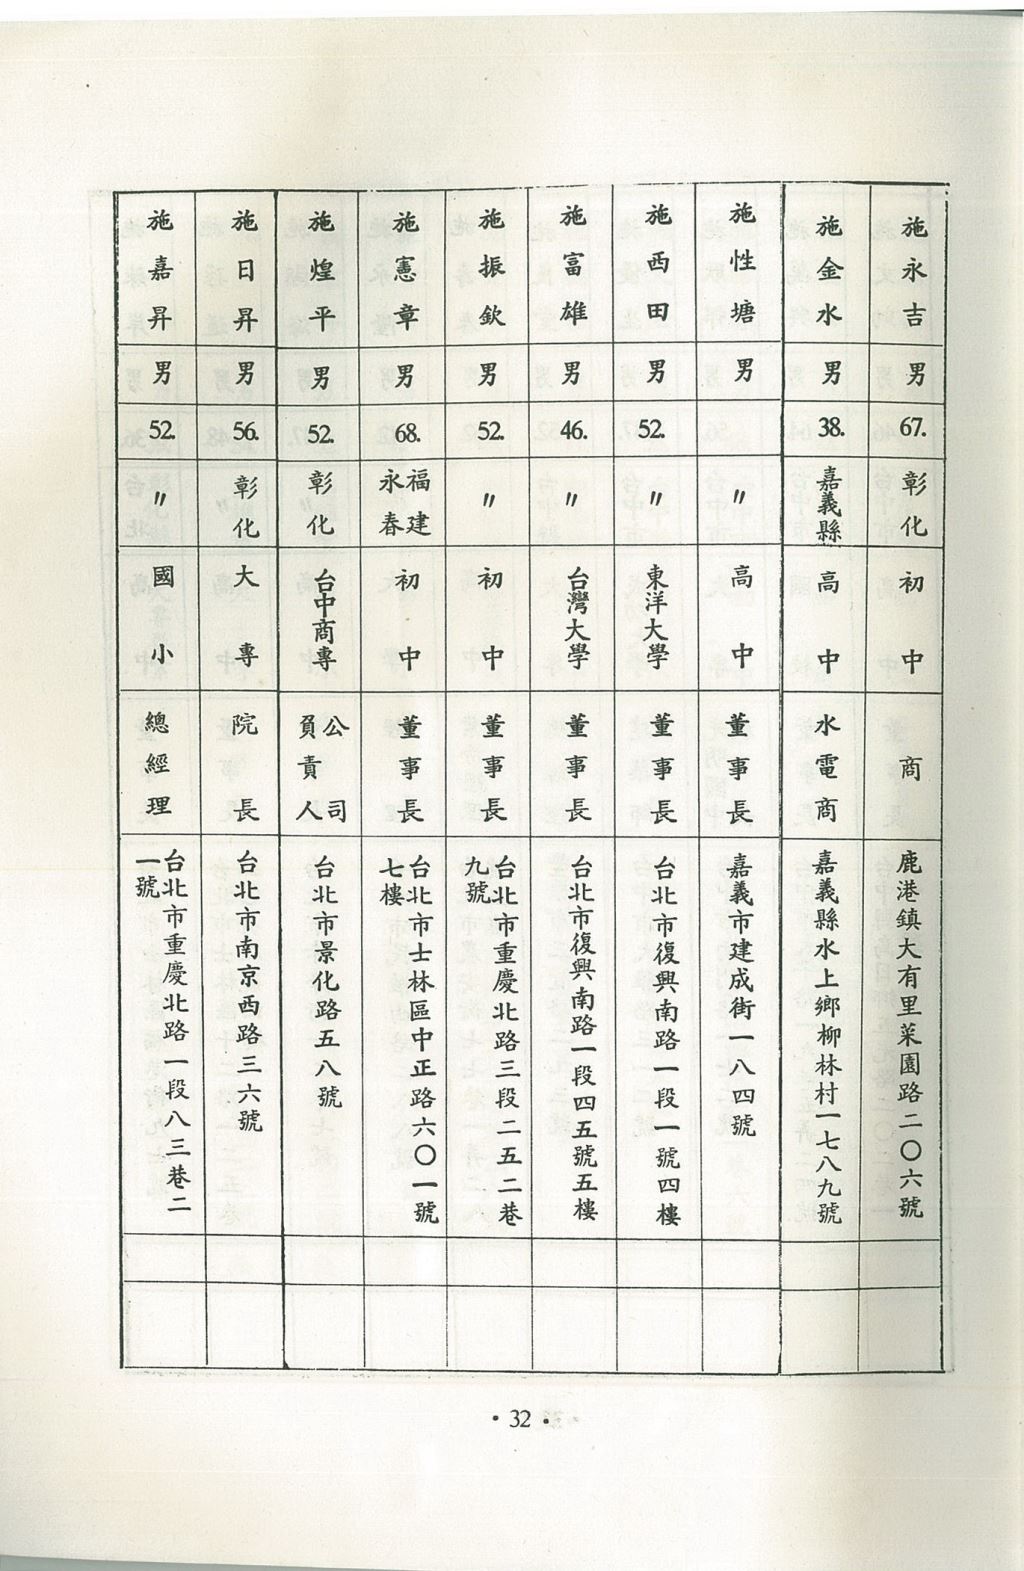 施永吉 男 67. 彰化 初中 商 鹿港鎮大有里菜園路二〇六號
施金水 男 38. 嘉義縣 高中 水電商 嘉義縣水上鄉柳林村一七八九號
施性塘 男 〃 高中 董事長 嘉義市建成街一八四號
施西田 男 52. 〃 東洋大學 董事長 台北市復興南路一段一號四樓
施富雄 男 46. 〃 台灣大學 董事長 台北市復興南路一段四五號五樓
施振欽 男 52. 〃 初中 董事長 台北市重慶北路三段二五二巷
九號
施憲章 男 68. 福建
永春 初中 董事長 台北市士林區中正路六〇一號
七樓
施煌平 男 52. 彰化 台中商專 公司
負責人 台北市景化路五八號
施日昇 男 56. 彰化 大專 院長 台北市南京西路三六號
施嘉昇 男 52. 〃 國小 總經理 台北市重慶北路一段八三巷二
一號
• 32 •